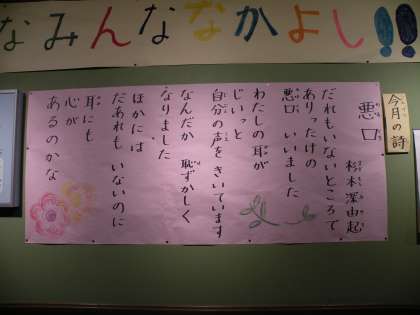 なみんななかよし!!
今月の詩
悪口
杉本深由起
だれもいないところで
ありったけの
悪口 いいました
わたしの耳が
じいっと
自分の声をきいています
なんだか 恥ずかしく
なりました
ほかには、
だあれも いないのに
耳にも
心が
あるのかな